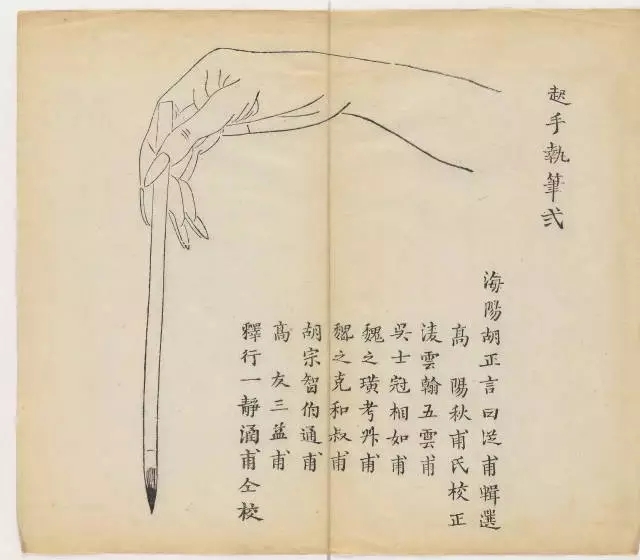 起手執筆弍
海陽胡正言曰從甫輯選
高陽秋甫氏校正
淩雲翰五雲甫
吳士冠相如甫
魏之璜考叔甫
魏之克和叔甫
胡宗智伯通甫
高友三益甫
釋行一靜涵甫仝校